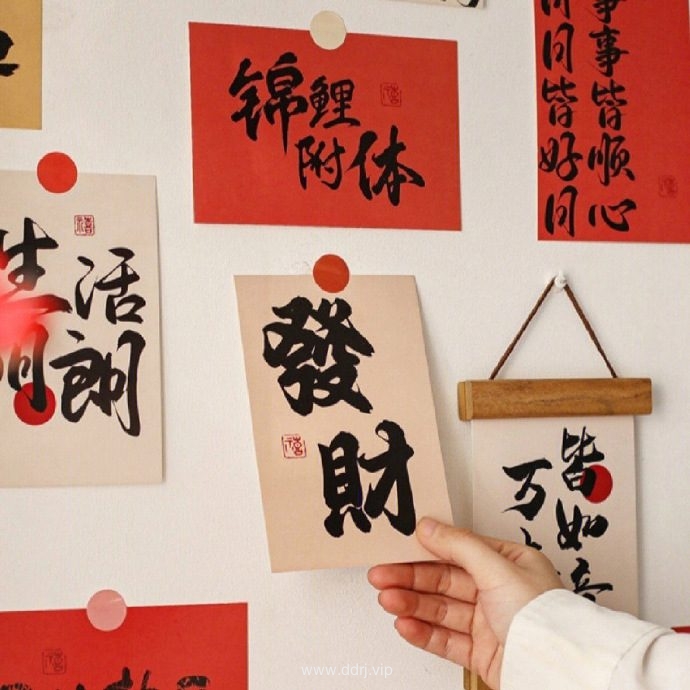 锦鲤
附体
事事皆顺心
日日皆好日
生活
明朗
發
財
皆如意
万
禧
禧
禧
www.ddrj.vip